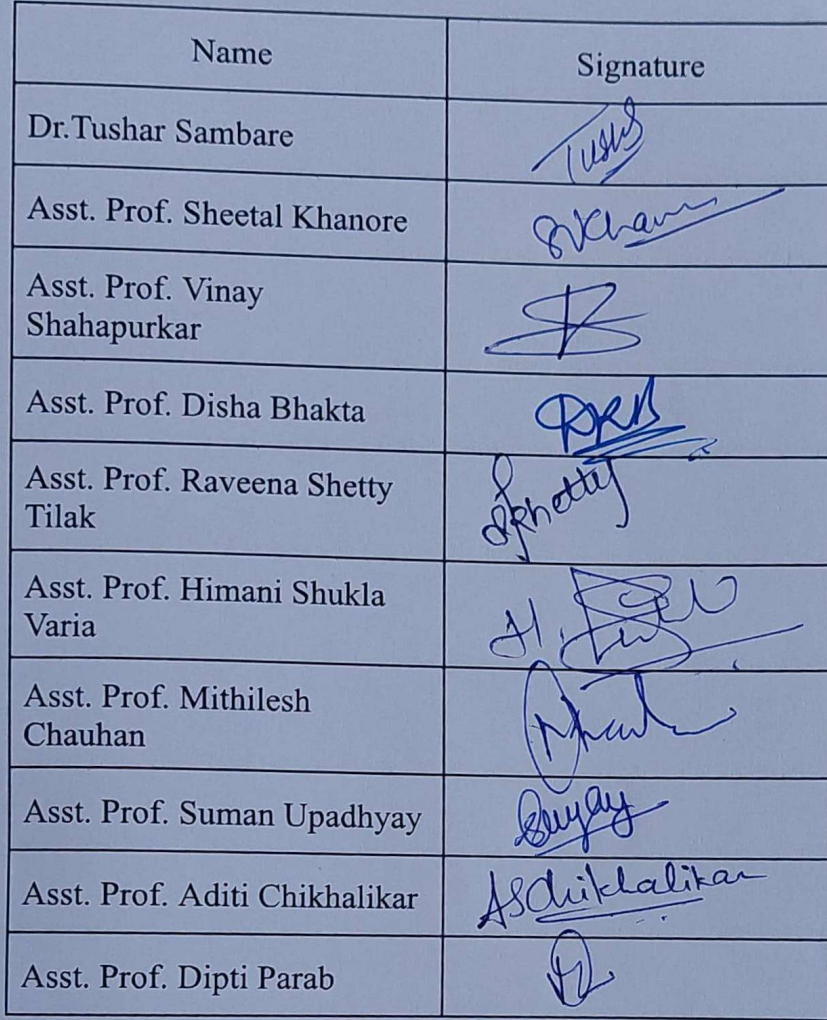 Name
Signature
Dr.Tushar Sambare
Asst. Prof. Sheetal Khanore
Asst. Prof. Vinay
Shahapurkar
Asst. Prof. Disha Bhakta
DRB
Asst. Prof. Raveena Shetty
Tilak
Asst. Prof. Himani Shukla
Varia
Asst. Prof. Mithilesh
Chauhan
Asst. Prof. Suman Upadhyay
Asst. Prof. Aditi Chikhalikar
ASChikhalikar
Asst. Prof. Dipti Parab